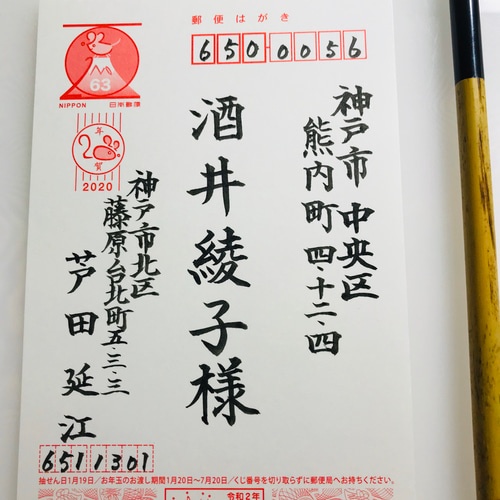 郵便はがき
6500056
神戸市中央区
熊内町四・十二・四
酒井綾子様
63
NIPPON 日本郵便
年賀
2020
神戸市北区
藤原台北町五・三・三
芦田延江
6511301
抽せん日1月19日/お年玉のお渡し期間1月20日〜7月20日/くじ番号を切り取らずに郵便局へお持ちください。
令和2年